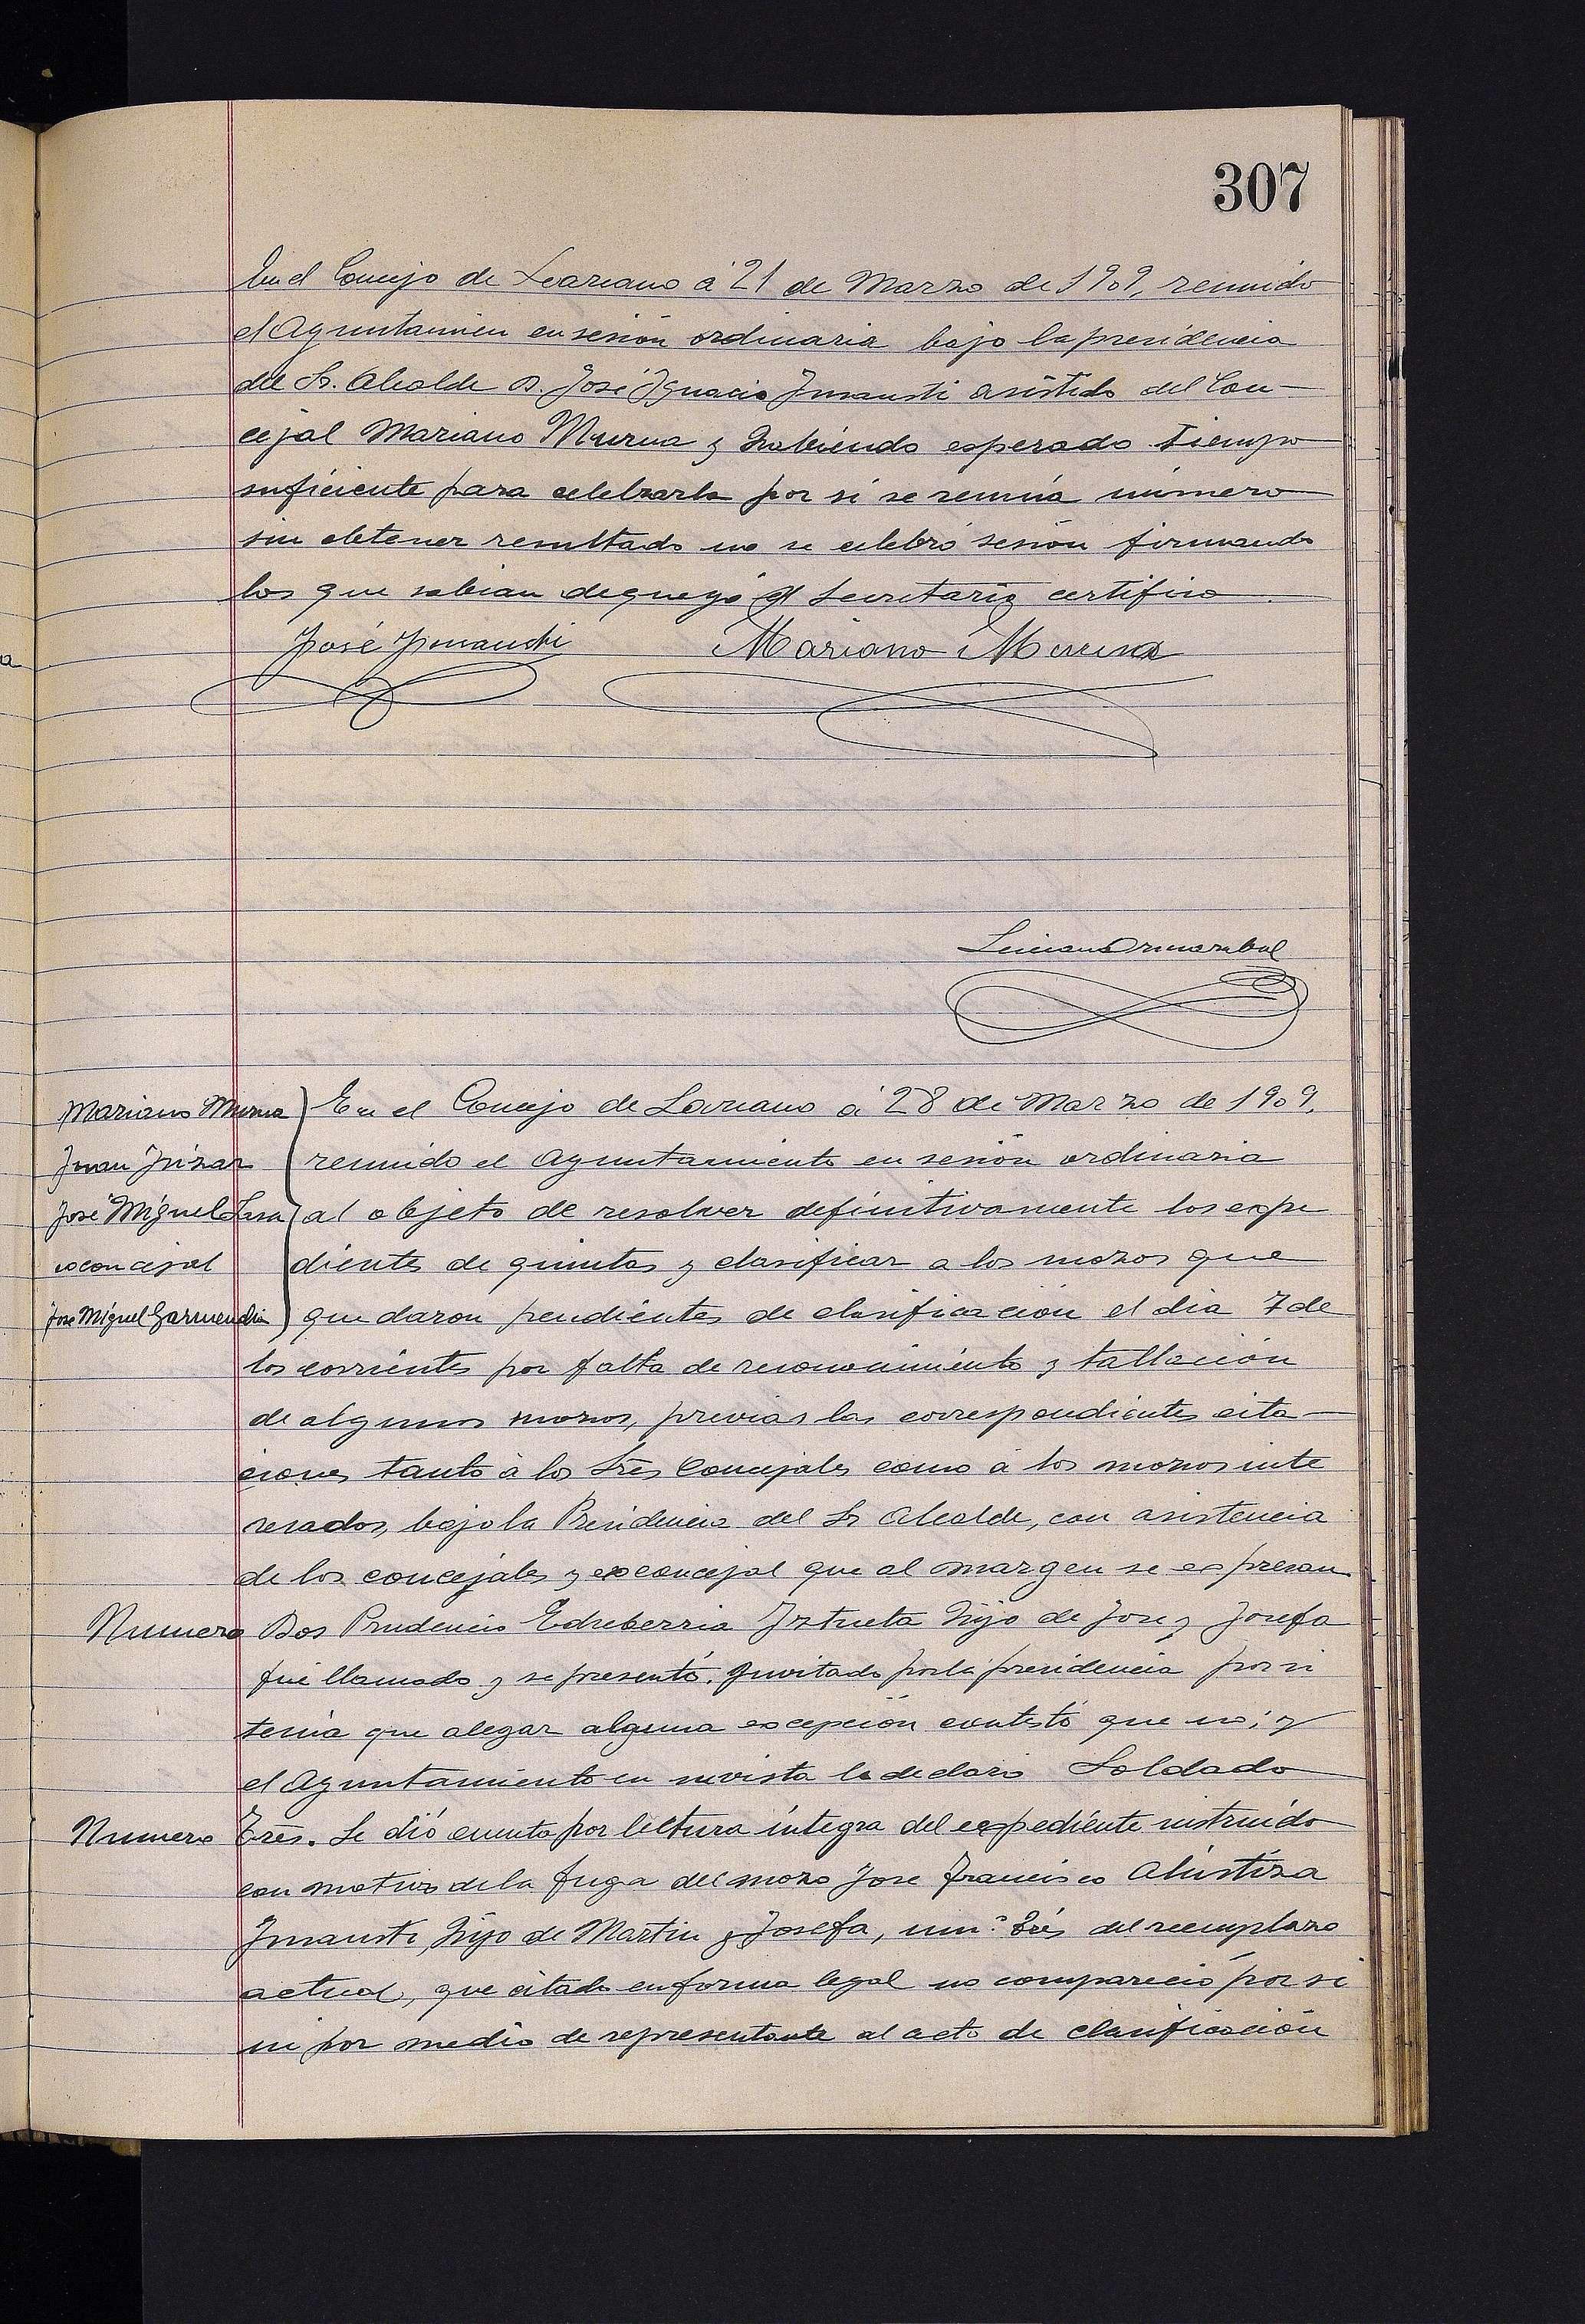 307
En el Concejo de Lazcano á 21 de Marzo de 1909, reunido
el Ayuntamien en sesión ordinaria bajo la presidencia
del Sr. Alcalde D. José Ignacio Insausti asistido del Con-
cejal Mariano Murua y habiendo esperado tiempo
suficiente para celebrarla por si se reunia número
sin obtener resultado no se celebró sesión firmando
los que sabian de que yo el Secretario certifico.
José Insausti Mariano Murua
Luciano
Mariano Murua
Juan
José Miguel Lasa
exconcejal
Jose Miguel Garmendia
En el Concejo de Lazcano á 28 de Marzo de 1909,
reunido el Ayuntamiento en sesión ordinaria
al objeto de resolver definitivamente los expe
dientes de quintas y clasificar a los mozos que
quedaron pendientes de clasificación el dia 7 de
los corrientes por falta de reconocimiento y tallación
de algunos mozos, previas las correspondientes cita-
ciones tanto á los Sres Concejales como á los mozos inte
resados, bajo la Presidencia del Sr Alcalde, con asistencia
de los concejales y exconcejal que al margen se expresan.
Numero Dos Prudencio Echeberria Iztueta hijo de Jose y Josefa
fué llamado y se presentó. Invitado por la presidencia por si
tenia que alegar alguna excepción contestó que no; y
el Ayuntamiento en su vista le declaró Soldado
Numero Tres. Se dió cuenta por lectura integra del expediente instruido
con motivo de la fuga del mozo Jose Francisco Alustiza
Insausti, hijo de Martin y Josefa, num.º tres del reemplazo
actual, que citado en forma legal no compareció por si
ni por medio de representante al acto de clasificación